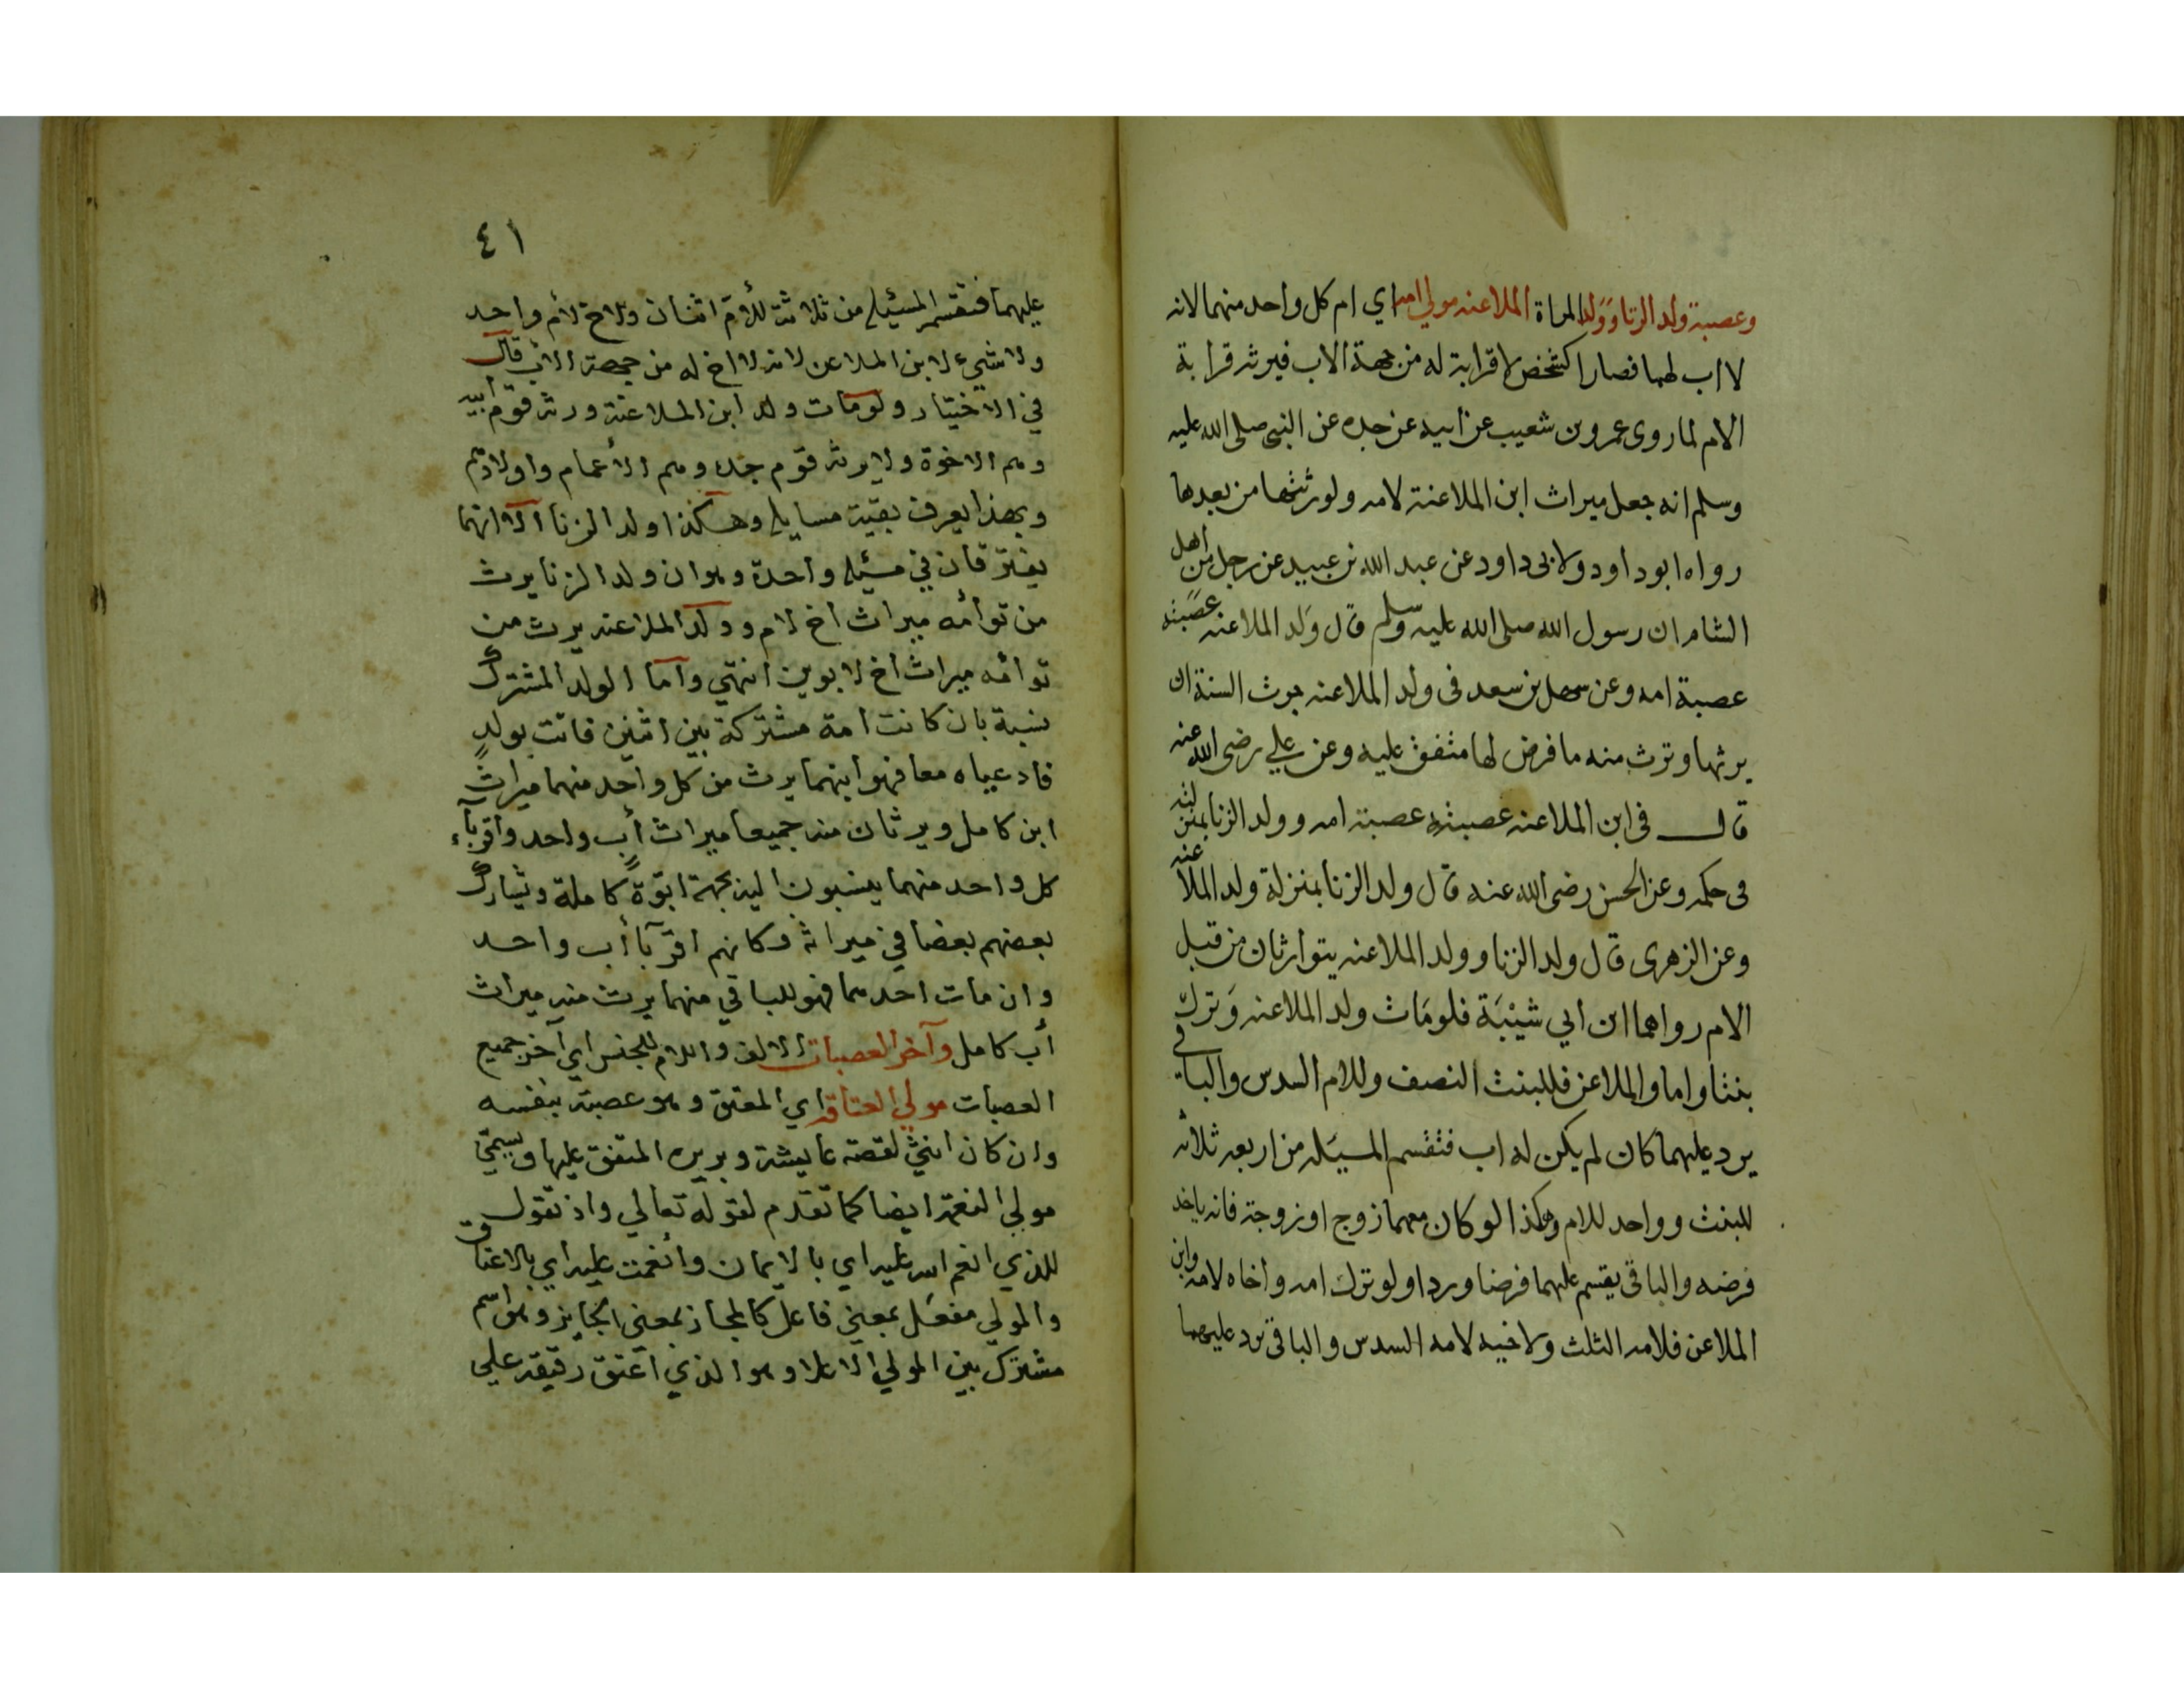 وعصبة ولد الزنا وولد المراة الملاعنه مولي امه اي ام كل واحد منهما لانه
لا اب لهما فصارا كشخص لا قرابة له من جهة الاب فيرثه قرابة
الام لما روى عمرو بن شعيب عن ابيه عن جده عن النبي صلى الله عليه
وسلم انه جعل ميراث ابن الملاعنة لامه ولورثتها من بعدها
رواه ابو داود ولابى داود عن عبد الله بن عبيد عن رجل من اهل
الشام ان رسول الله صلى الله عليه وسلم قال ولد الملاعنه عصبته
عصبة امه وعن سهل بن سعد فى ولد الملاعنه جرت السنة ان
يرثها وترث منه ما فرض لها متفق عليه وعن علي رضى الله عنه
قال فى ابن الملاعنه عصبته عصبة امه وولد الزنا بمنزلته
فى حكمه وعن الحسن رضى الله عنه قال ولد الزنا بمنزلة ولد الملاعنه
وعن الزهرى قال ولد الزنا وولد الملاعنه يتوارثان من قبل
الام رواهما ابن ابي شيبة فلو مات ولد الملاعنه وترك
بنتا واما والملاعن فللبنت النصف وللام السدس والباقي
يرد عليهما كان لم يكن له اب فتقسم المسيله من اربعه ثلاثه
للبنت وواحد للام وهكذا لو كان معهما زوج او زوجة فانه ياخد
فرضه والباقى يقسم عليهما فرضا وردا ولو ترك امه واخاه لامه وابن
الملاعن فلامه الثلث ولاخيه لامه السدس والباقى يرد عليهما
٤١
عليهما فتقسم المسئله من ثلاثة للأم اثنان وللاخ لأم واحد
ولا شيء لابن الملاعن لانه لا اخ له من جهة الاب قال
في الاختيار ولو مات ولد ابن الملاعنة ورثه قوم أبيه
وهم الاخوة ولا يرثه قوم جده وهم الأعمام واولادهم
وبهذا يعرف بقية مسايله وهكذا ولد الزنا الا انهما
يفترقان في مسئله واحدة وهو ان ولد الزنا يرث
من توأمه ميراث اخ لام وولد الملاعنه يرث من
توأمه ميراث أخ لابوين انتهي واما الولد المشترك
نسبة بان كانت امة مشتركة بين اثنين فاتت بولدٍ
فادعياه معا فهو ابنهما يرث من كل واحد منهما ميراث
ابن كامل ويرثان منه جميعا ميراث أبٍ واحد واقرباء
كل واحد منهما ينسبون اليه بجهة ابوّةٍ كاملة ويشارك
بعضهم بعضا في ميراثه وكانهم اقربآ أب واحد
وان مات احدهما فهو للباقي منهما يرث منه ميراث
أب كامل وآخر العصبات الالف واللام للجنس اي آخر جميع
العصبات مولي العتاقه اي المعتق وهو عصبة بنفسه
وان كان انثي لقصة عايشة وبريره المتفق عليها ويسمّي
مولي النعمة ايضا كما تقدم لقوله تعالي واذ تقول
للذي انعم الله عليه اي بالايمان وأنعمت عليه اي بالاعتاق
والمولي مفعل بمعني فاعل كالمجاز بمعني الجايز وهو اسم
مشترك بين المولي الاعلا وهو الذي اعتق رقيقه علي